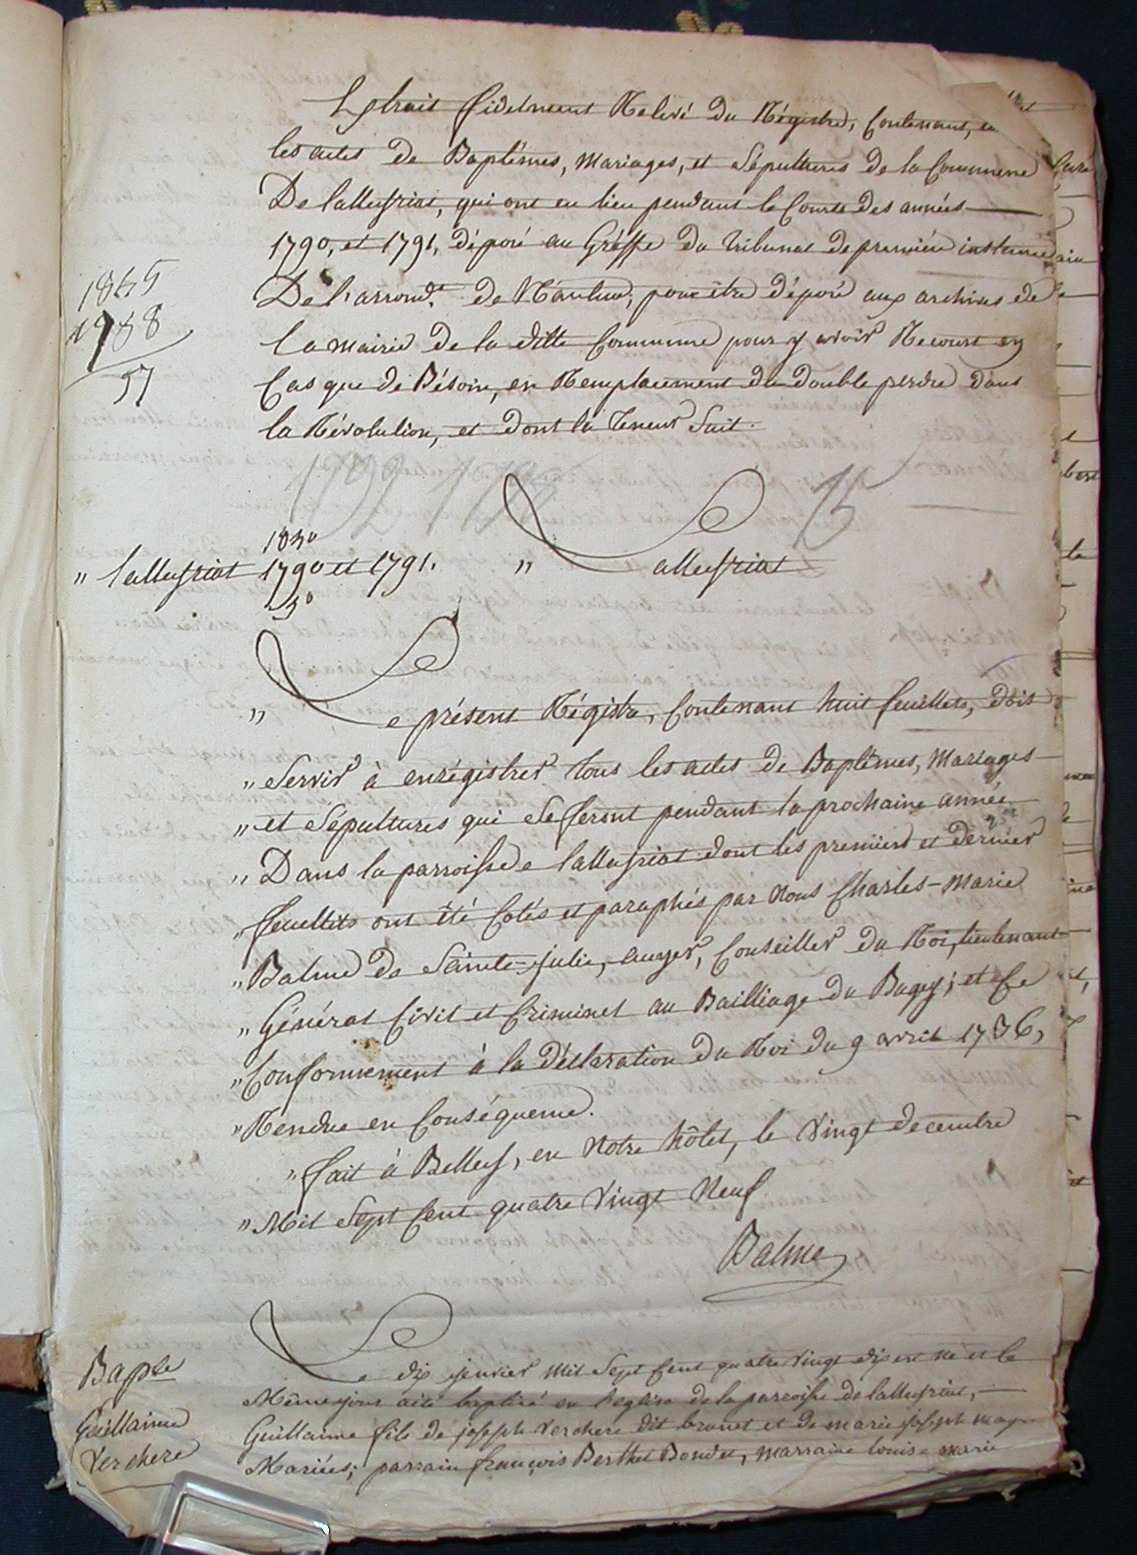 Extrait fidelment Relevé du Régistre, Contenant,
les actes de Baptêmes, Mariages, et Sépultures de la Commune
De lalleyriat, qui ont eu lieu pendant le Cours des années
1790, et 1791, déposé au Gréffe du Tribunal de première instance
De l'arrondt. de Nantua, pour être déposé aux archives de
la mairie de la ditte Commune pour y avoir Recours en
Cas que de Bésoin, en Remplacement du double perdu dans
la Révolution, et dont la Teneur Suit.
1865
1788
57
1792
15
1830
" lalleyriat 1790 et 1791. " Lalleyriat
30
" Le présent Régistre, Contenant huit feuillets, doit
" Servir à enrégistrer tous les actes de Baptêmes, Mariages
" et Sépultures qui se feront pendant la prochaine année
" Dans la parroisse lalleyriat dont les premiers et dernier
" feuillets ont été Cotés et paraphés par Nous Charles-Marie
" Balme de Sainte-julie, Conseiller du Roi, lieutenant
" Général Civil et Criminel au Bailliage du Bugey; et Ce
" Conformément à la Déclaration du Roi du 9 avril 1736,
" Rendue en Conséquence.
" fait à Belley, en Notre hôtel, le Vingt decembre
" Mil Sept Cent quatre Vingt Neuf
Balme
Bapte
Guillaume
Verchere
Le dix janvier mil Sept Cent quatre vingt dix est né et le
Même jour a été baptisé en l'eglise de la paroisse de lalleyriat,
Guillaume fils de joseph Verchere dit brunet et de marie joseph
Mariées; parrain françois Berthet Bondet, marraine louise marie